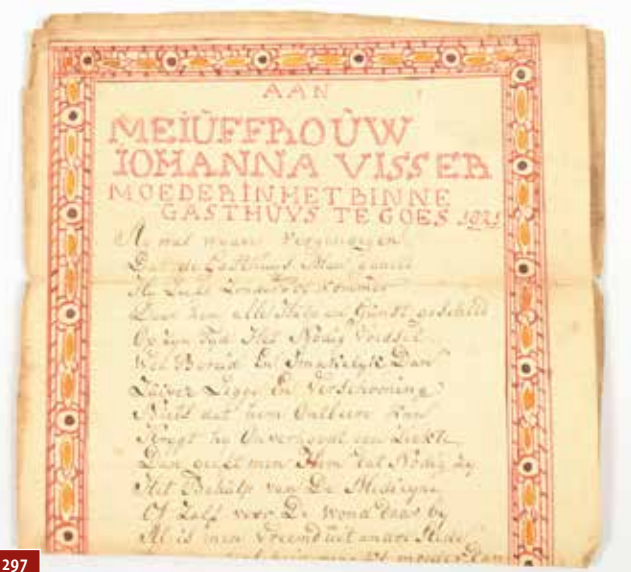 AAN
MEIÙFFROÙW
IOHANNA VISSER
MOEDER IN HET BINNE
GASTHUYS TE GOES
wat waare Vergenoegen
Dat de Gasthuys Man
Hy Zonder
Door hem alle Hulp en Gunst geschied
Op zyn Tyd Het Nodig Voedsel
Wel Bereid En Smakelyk Dan
Zuiver Legge En Verschooning
Niets dat hem Ontbeere kan
Krygt hy Onverhoopt een Ziekte
Dan geeft men Hem dat Nodig zy
Het Behulp van De Medicyne
Of Zelf voor De wond daar by
Al is men Vreemd uit andre Stede
moeder Dan
297